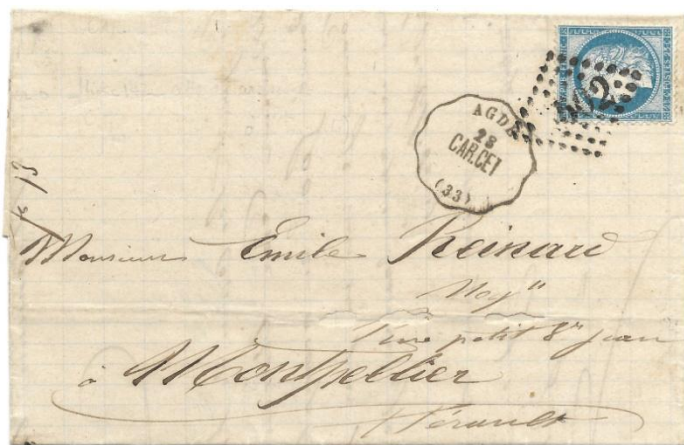 AGDE
28
CAR.CET
(33)
Monsieur Emile Reinard
Neg^t
rue petit S^t jean
à Montpellier
Hérault